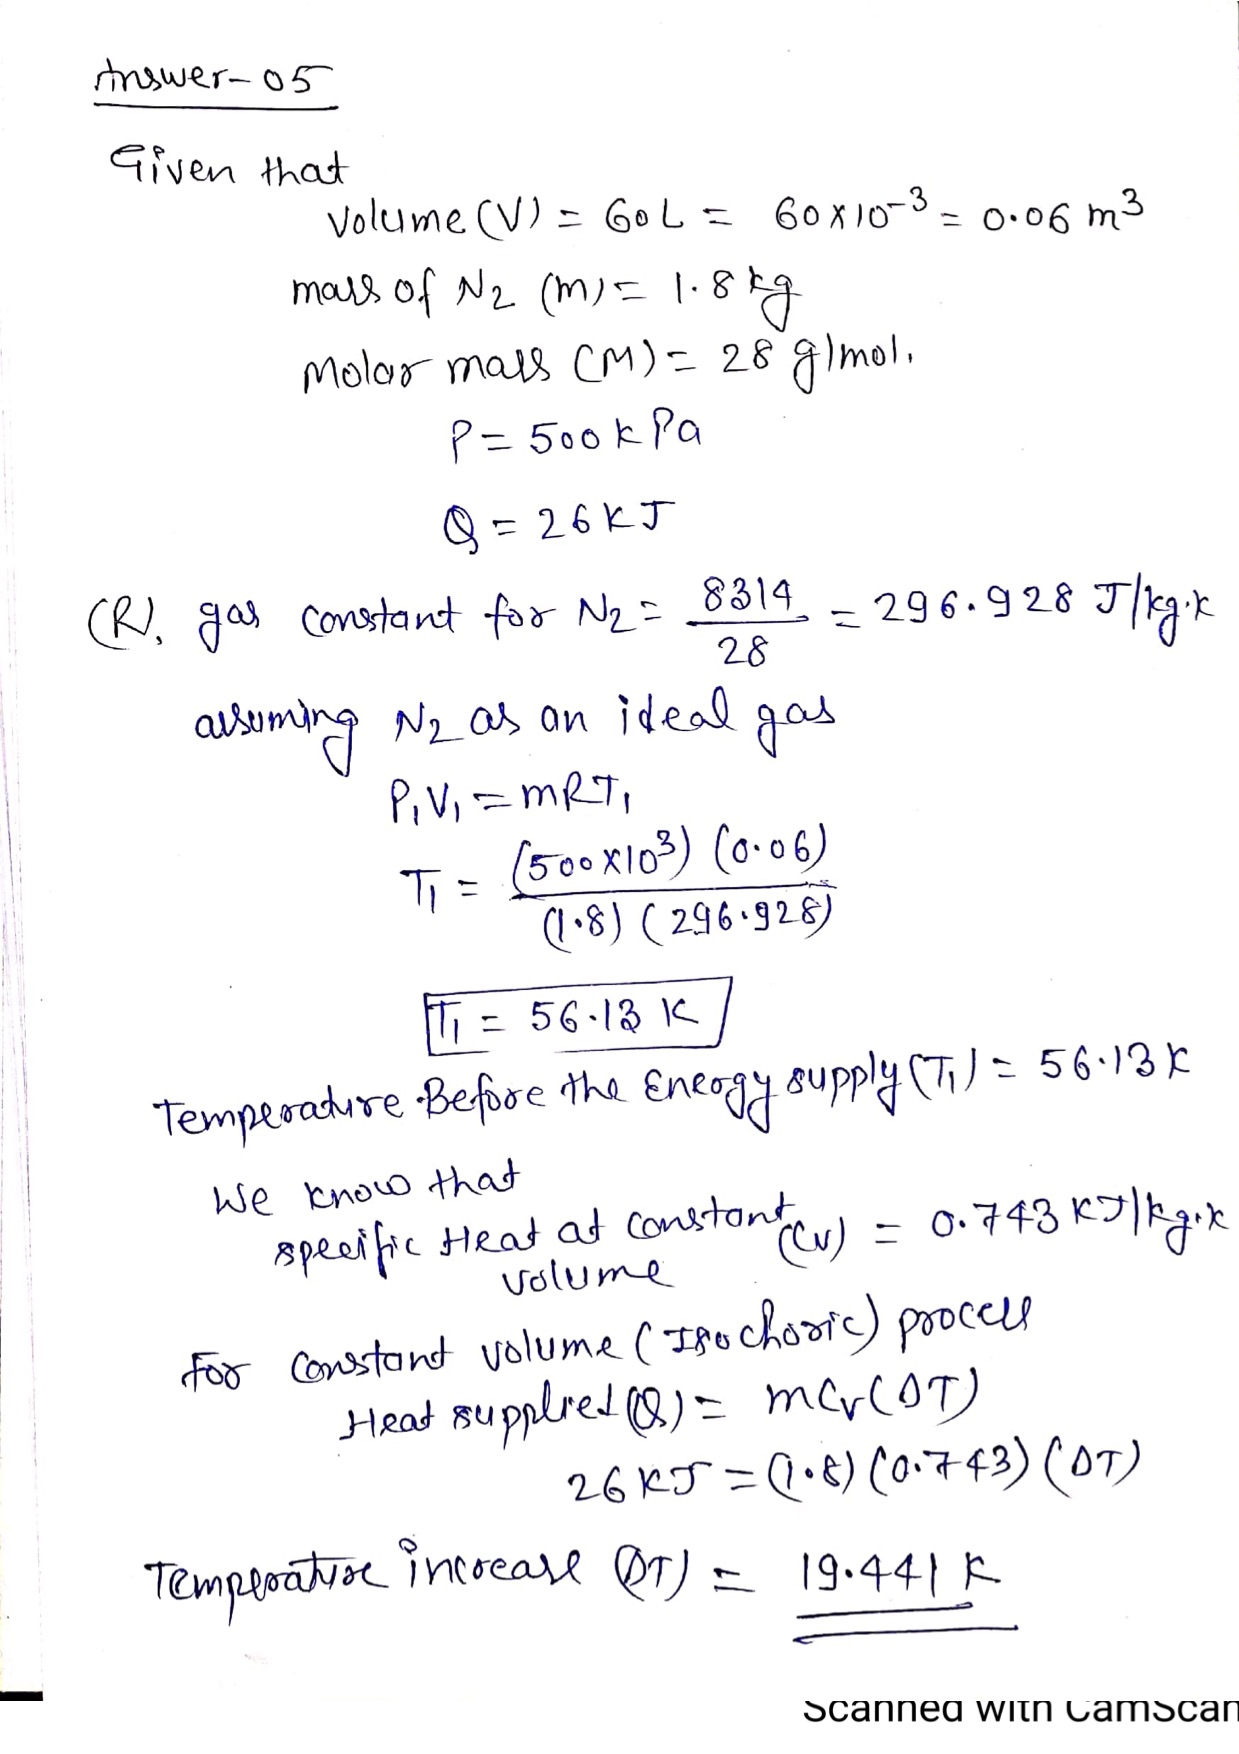 Answer-05
Given that
Volume (V) = 60L = 60×10⁻³ = 0.06 m³
mass of N₂ (m) = 1.8 kg
Molar mass (M) = 28 g/mol.
P = 500 kPa
Q = 26 KJ
(R), gas constant for N₂ = 8314/28 = 296.928 J/kg.K
assuming N₂ as an ideal gas
P₁V₁ = mRT₁
T₁ = (500×10³) (0.06) / (1.8) (296.928)
T₁ = 56.13 K
Temperature Before the Energy supply (T₁) = 56.13 K
We know that
specific Heat at constant volume (Cv) = 0.743 KJ/kg.K
For constant volume (Isochoric) process
Heat supplied (Q) = mCv(ΔT)
26 KJ = (1.8) (0.743) (ΔT)
Temperature increase (ΔT) = 19.441 K
Scanned with CamScan